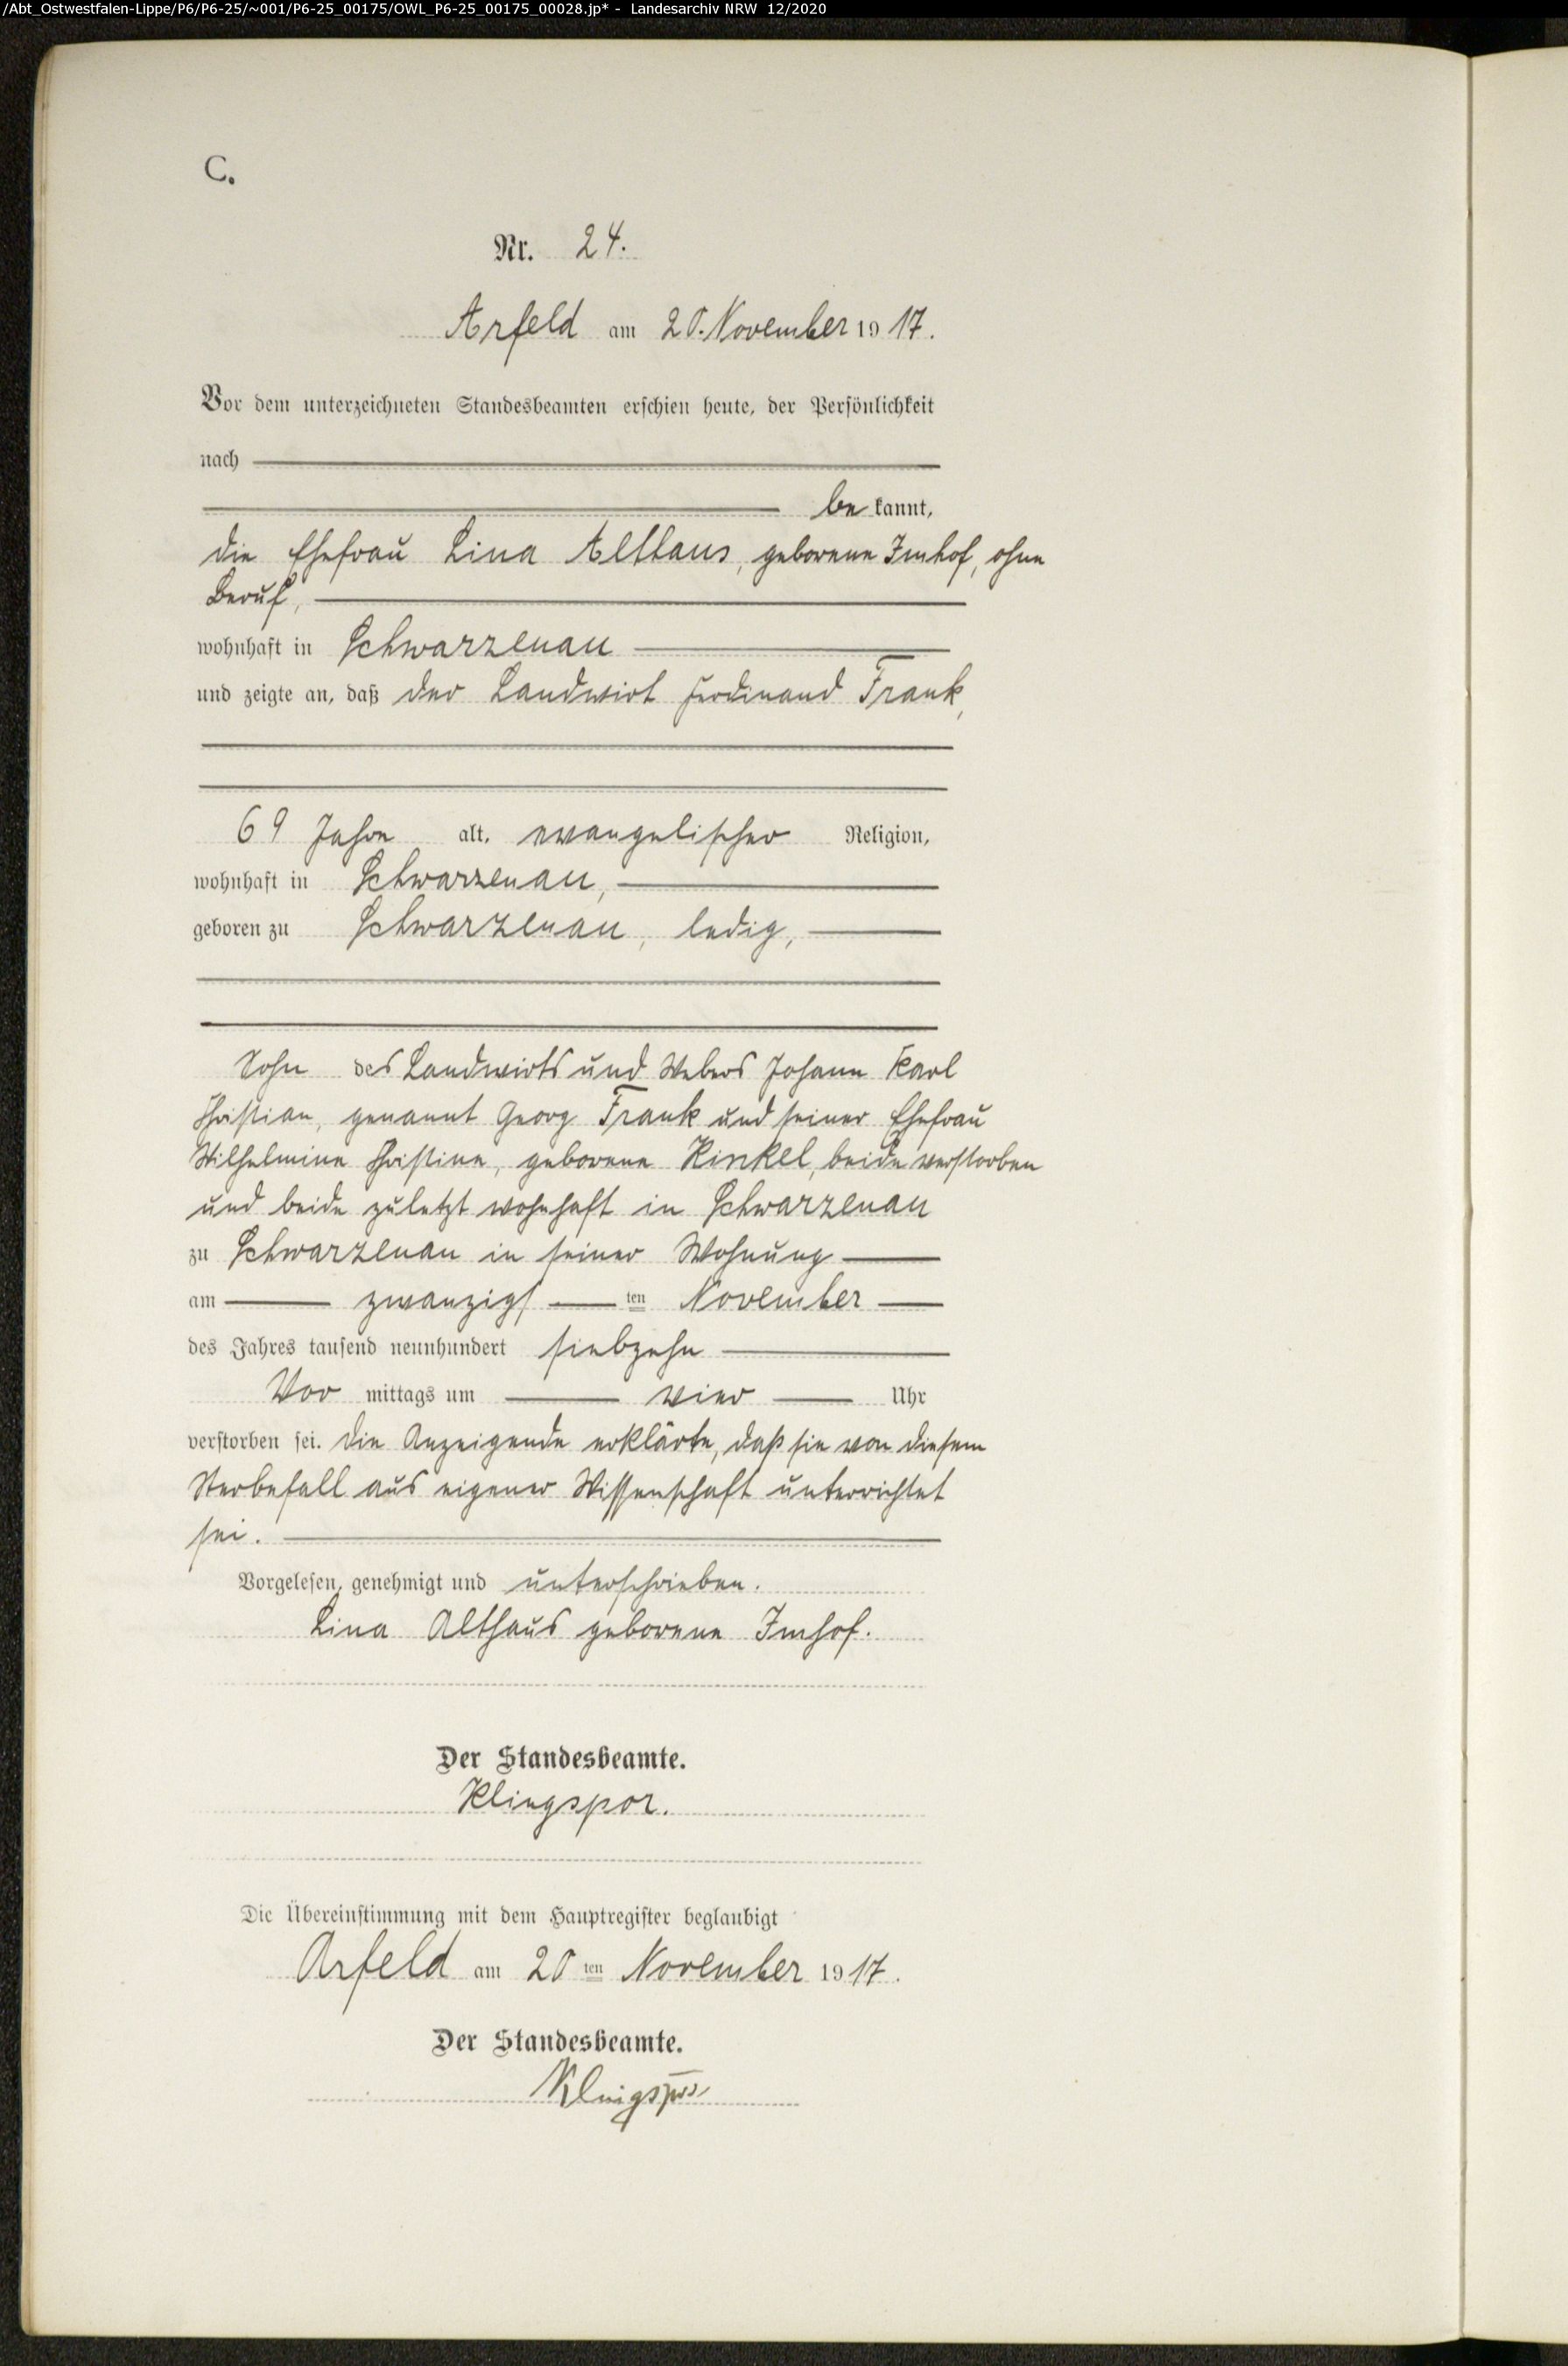 /Abt_Ostwestfalen-Lippe/P6/P6-25/~001/P6-25_00175/OWL_P6-25_00175_00028.jp* - Landesarchiv NRW 12/2020
C.
Nr. 24.
Arfeld am 20. November 1917.
Vor dem unterzeichneten Standesbeamten erschien heute, der Persönlichkeit
nach
be kannt,
die Ehefrau Lina Althaus, geborene Imhof, ohne
Beruf,
wohnhaft in Schwarzenau
und zeigte an, daß der Landwirt Ferdinand Frank,
69 Jahre alt, evangelischer Religion,
wohnhaft in Schwarzenau,
geboren zu Schwarzenau, ledig,
Sohn des Landwirts und Webers Johann Karl
Christian, genannt Georg Frank und seiner Ehefrau
Wilhelmine Christine, geborene Kinkel, beide verstorben
und beide zuletzt wohnhaft in Schwarzenau
zu Schwarzenau in seiner Wohnung
am zwanzigsten November
des Jahres tausend neunhundert siebzehn
Vor mittags um vier Uhr
verstorben sei. Die Anzeigende erklärte, daß sie von diesem
Sterbefall aus eigener Wissenschaft unterrichtet
sei.
Vorgelesen, genehmigt und unterschrieben.
Lina Althaus geborene Imhof.
Der Standesbeamte.
Klingspor.
Die Übereinstimmung mit dem Hauptregister beglaubigt
Arfeld am 20ten November 1917.
Der Standesbeamte.
Klingspor